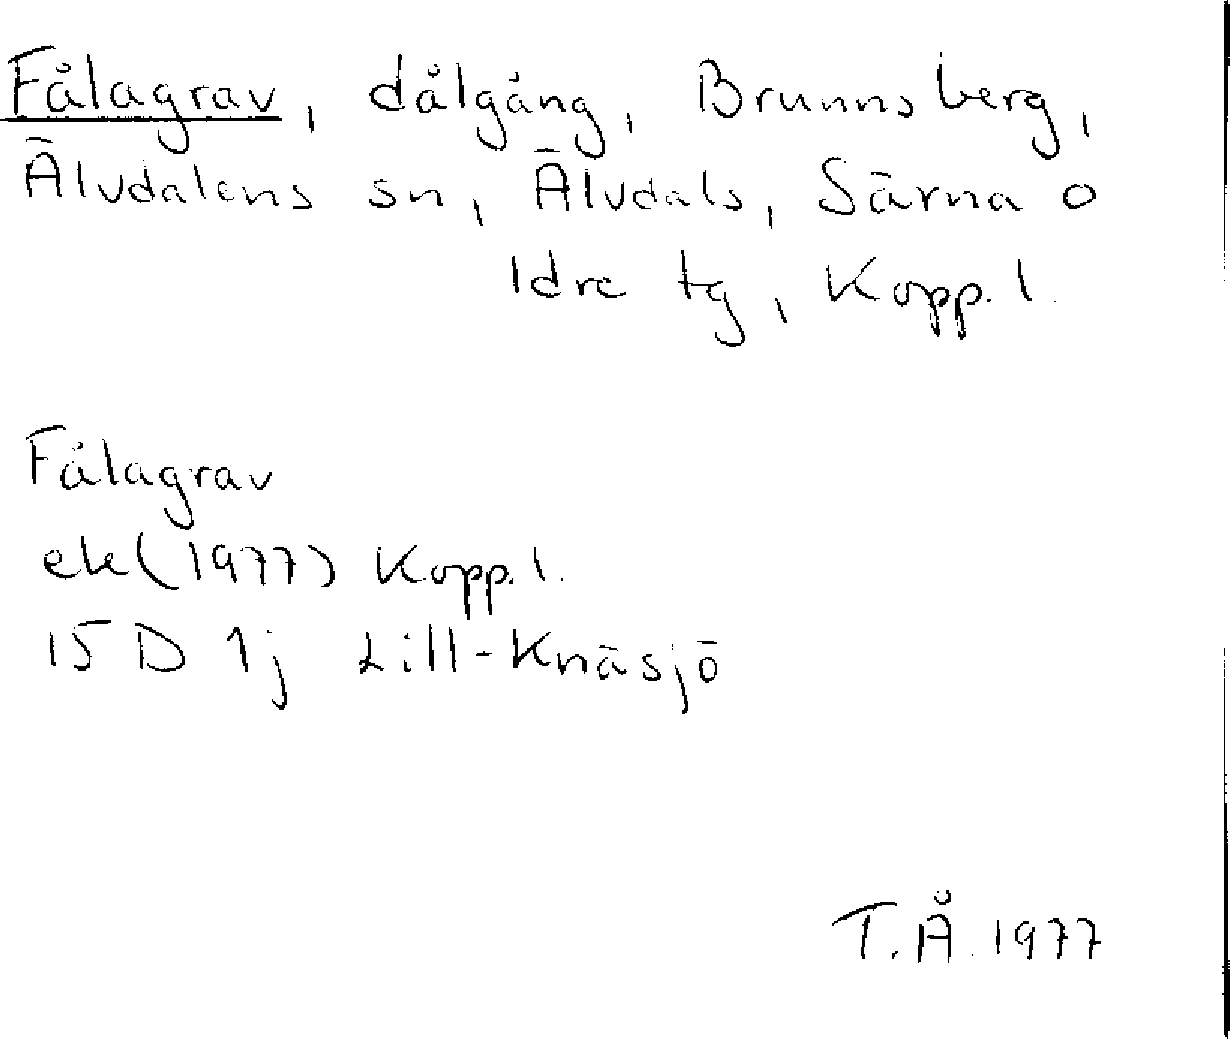 Fålagrav, dålgång, Brunnsberg,
Älvdalens sn, Älvdals, Särna o
Idre tg, Kopp. l.
Fålagrav
ek (1977) Kopp. l.
15 D 1j Lill-Knäsjö
T.Å. 1977